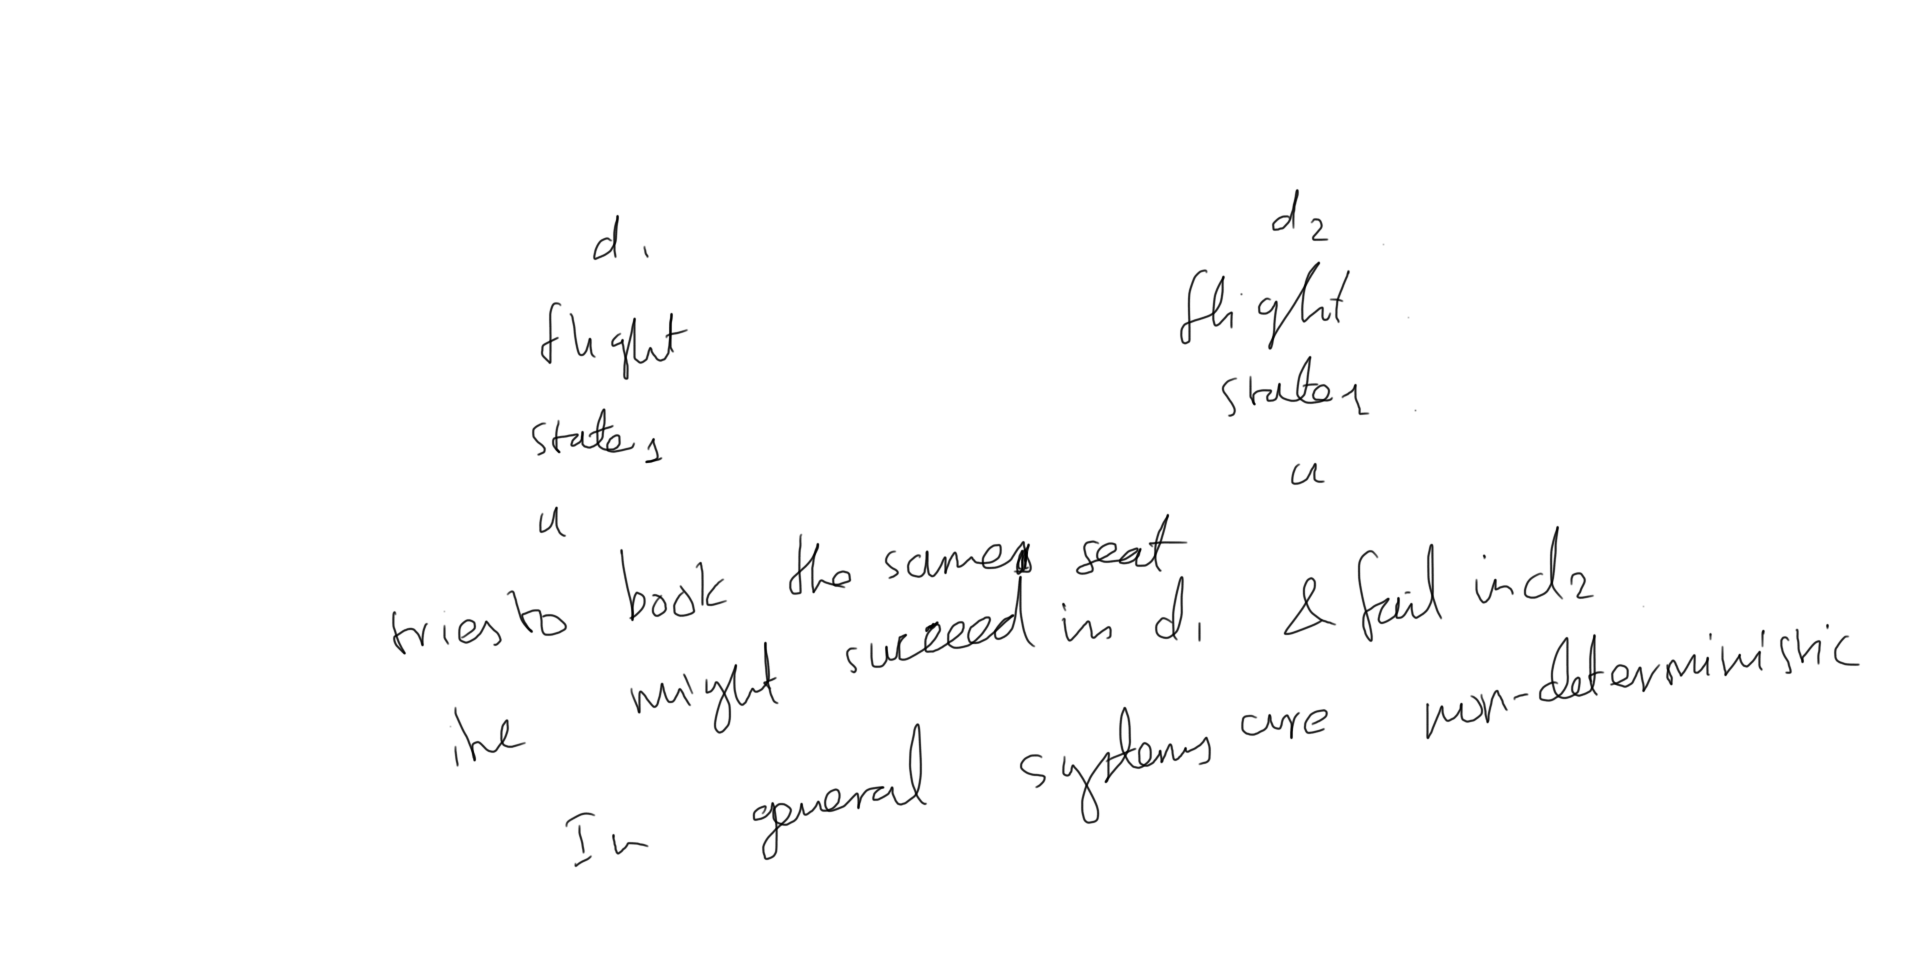 d1 d2
flight flight
state1 state1
u u
tries to book the same seat
might succeed in d1 & fail in d2
In general systems are non-deterministic